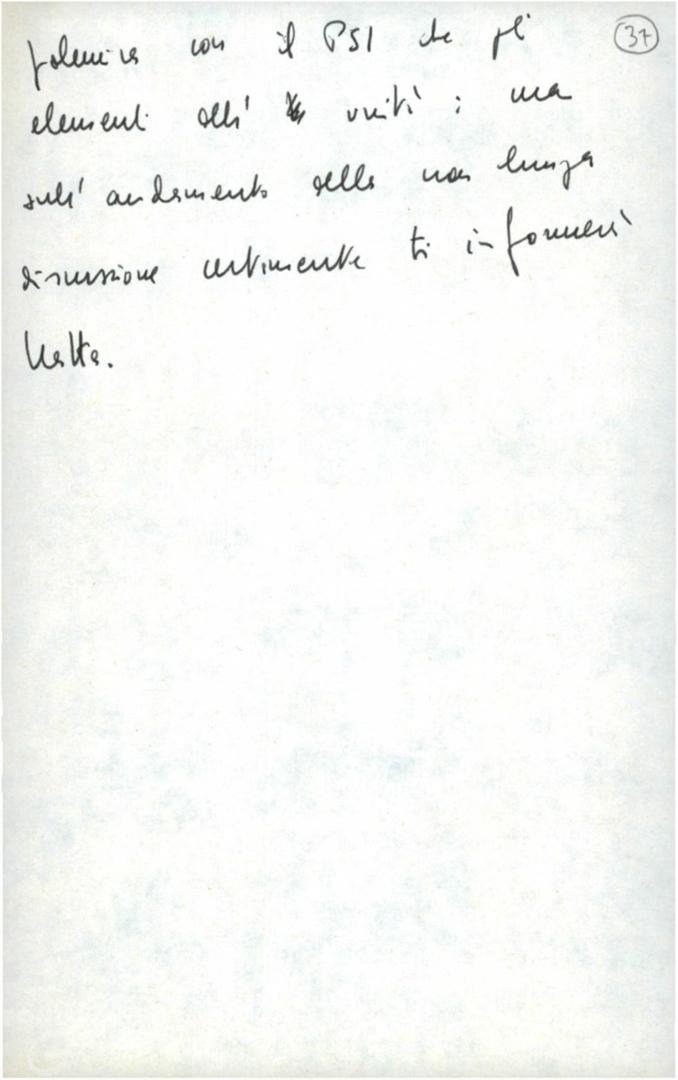 polemica con il PSI che gli 37
elementi dell' unità; ma
sull'andamento della non lunga
discussione certamente ti informerà
Natta.